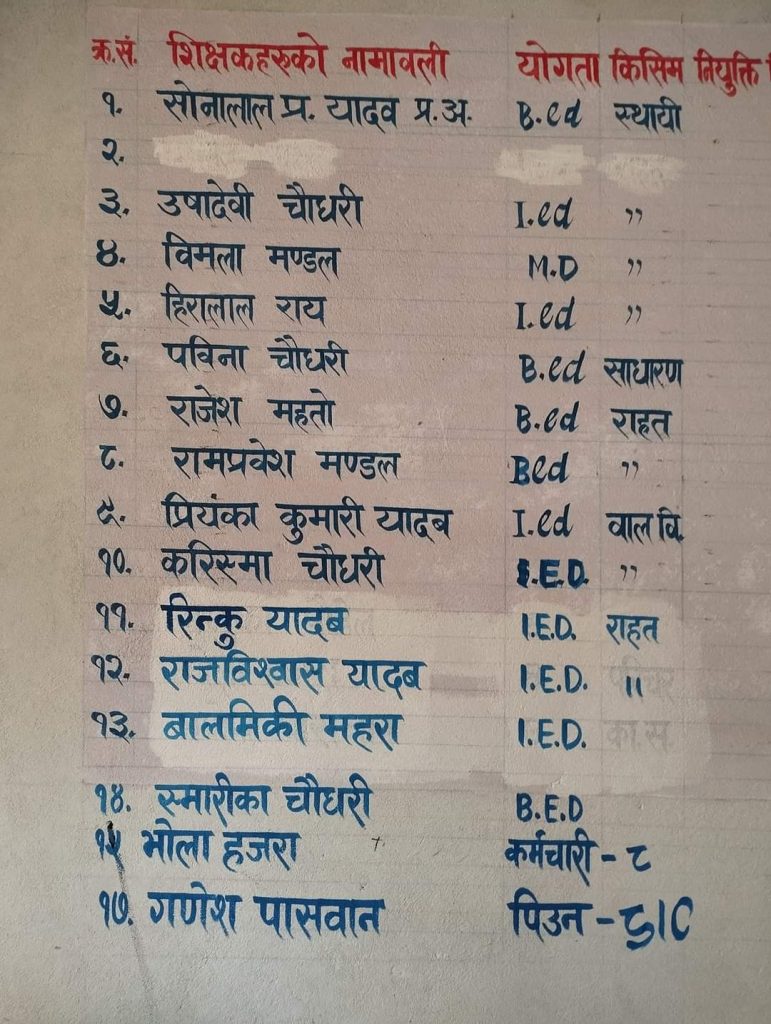 क्र.सं. शिक्षकहरुको नामावली योगता किसिम नियुक्ति
१. सोनालाल प्र. यादव प्र.अ. B.ed स्थायी
२.
३. उषादेवी चौधरी I.ed ,,
४. विमला मण्डल M.D ,,
५. हिरालाल राय I.ed ,,
६. पविना चौधरी B.ed साधारण
७. राजेश महतो B.ed राहत
८. रामप्रवेश मण्डल Bed ,,
९. प्रियंका कुमारी यादब I.ed वाल वि.
१०. करिस्मा चौधरी I.E.D. ,,
११. रिन्कु यादब I.E.D. राहत
१२. राजविश्वास यादब I.E.D. ॥
१३. बालमिकी महरा I.E.D. का.स.
१४. स्मारीका चौधरी B.E.D
१५ भोला हजरा कर्मचारी - ८
१७. गणेश पासवान पिउन -